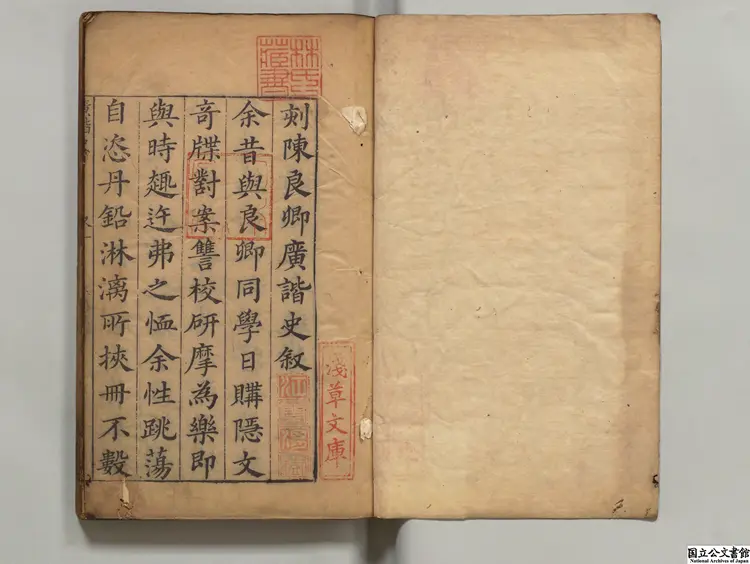 刻陳良卿廣諧史叙
余昔與良卿同學日購隱文
奇牒對案讐校研摩為樂即
與時趣迕弗之恤余性跳蕩
自恣丹鉛淋漓所挾冊不數
林氏藏書
淺草文庫
国立公文書館
National Archives of Japan